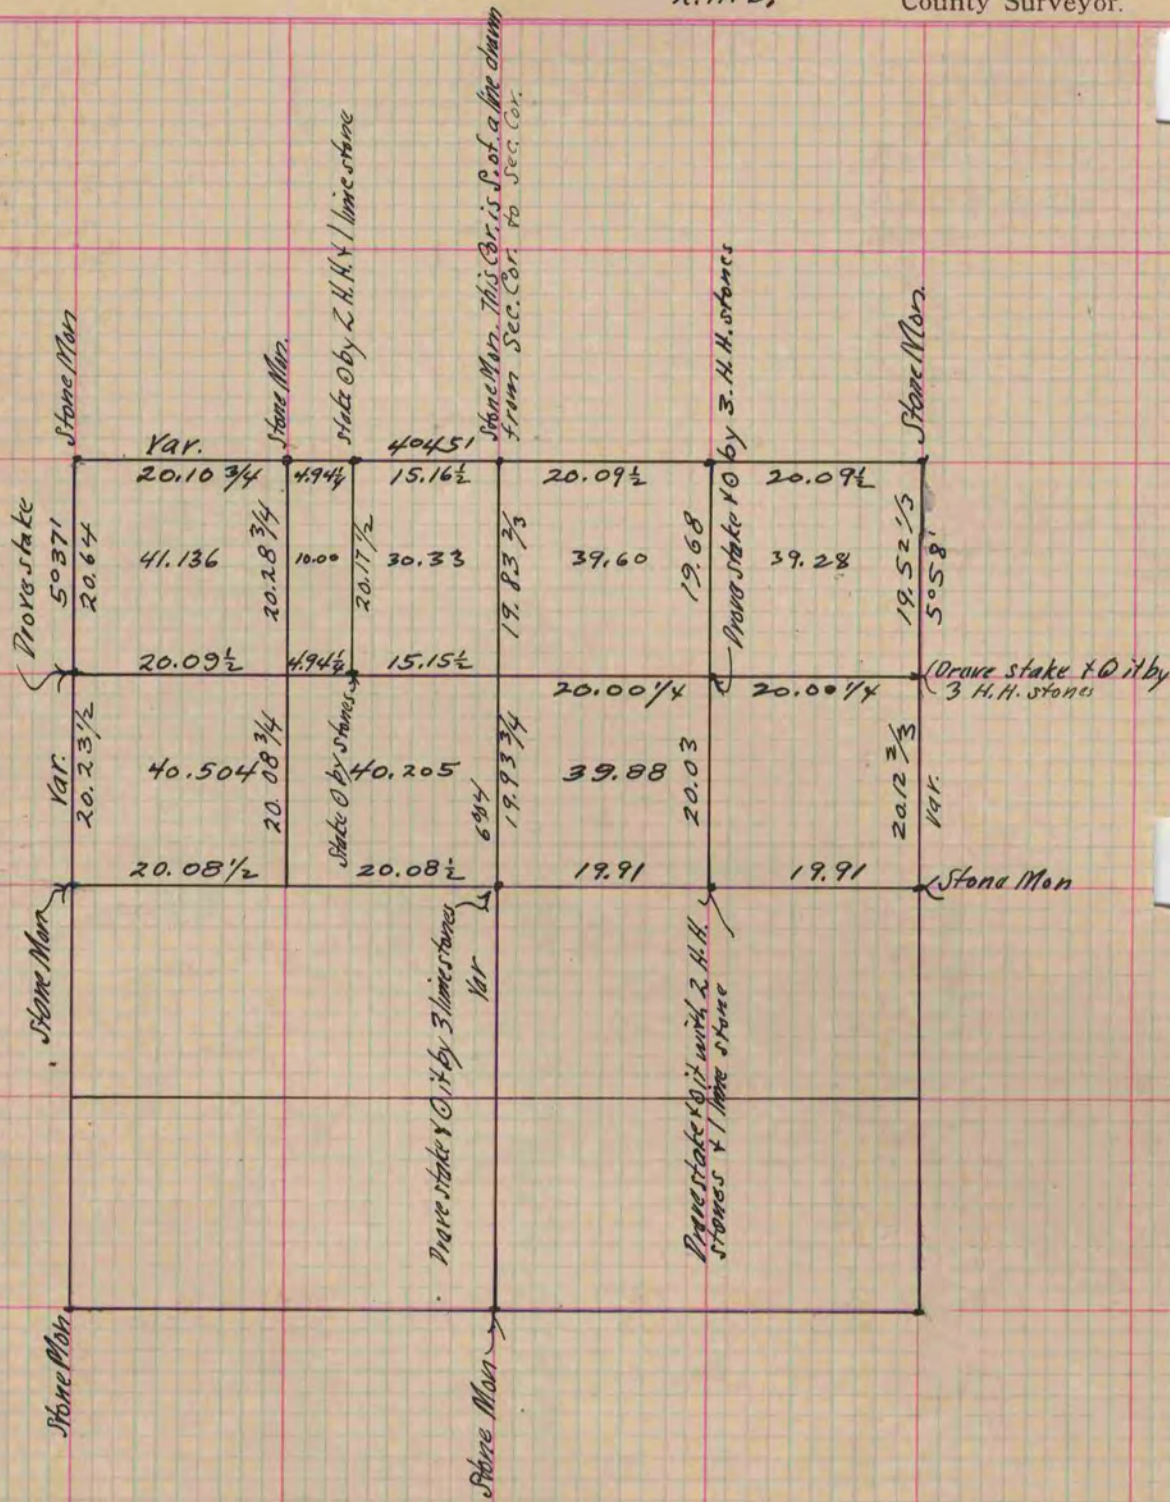 County Surveyor.
Stone Mon
Stone Mon.
stake ⊙ by 2 H.H. & 1 limestone
Stone Mon. This Cor. is S. of a line drawn
from Sec. Cor. to Sec. Cor.
Drove stake & ⊙ by 3. H.H. stones
Stone Mon.
Var.
4°45'
20.10 3/4
4.94¼
15.16½
20.09½
20.09½
Drove stake
5°37'
20.64
41.136
20.28 3/4
10.00
20.17 1/2
30.33
19.83 2/3
39.60
19.68
39.28
19.52 1/3
5°58'
20.09½
4.94¼
15.15½
20.00 1/4
20.00 1/4
Drove stake & ⊙ it by
3 H.H. stones
Var.
20.23 1/2
40.504
20.08 3/4
Stake ⊙ by stones
40.205
19.93 3/4
39.88
20.03
20.12 2/3
Var.
20.08 1/2
20.08½
19.91
19.91
Stone Mon
Stone Mon
Drove stake & ⊙ it by 3 limestones
Var
Drove stake & ⊙ it with 2 H.H.
stones & 1 lime stone
Stone Mon
Stone Mon